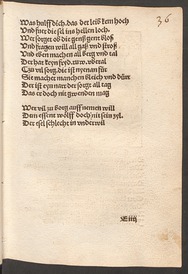 36
Was hulff dich, das der leib kem hoch
Und füre die sel ins hellen loch,
Wer sorget ob die genß gent bloß
Und fragen will all gaß und stroß
Und eben machen all berg und tal
Der hat keyn fryd, ruw, überal
Zu vil sorg, die ist nyenan für
Sie macher manchen bleich und dürr
Der ist eyn narr der sorgt all tag
Das er doch nit gwenden mag
Wer vil zu borg uffnemen will
Dem essent wölff doch nit sein zyl
Der esel schlecht in underwil
E iiij